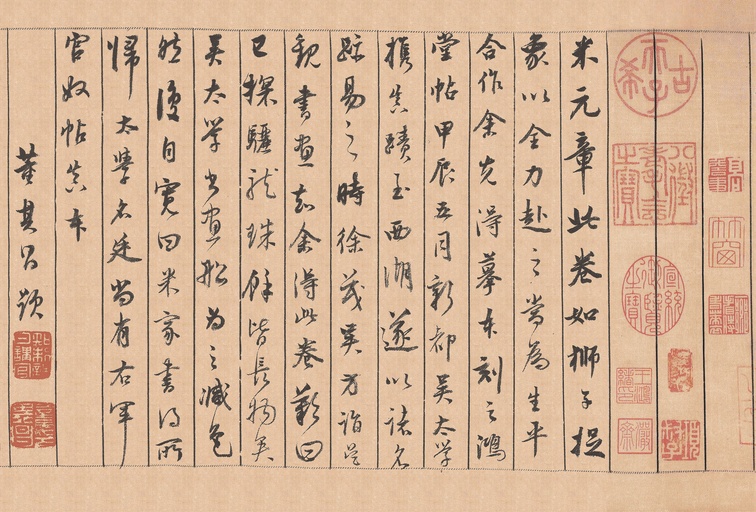 古希天子
八徵耄念之寶
宣統御覽之寶
竹窗
米元章此卷如獅子捉
象以全力赴之當為生平
合作余先得摹本刻之鴻
堂帖甲辰五月新都吳太学
攜真蹟至西湖遂以諸名
跡易之時徐茂吳方詣吳
觀書畫知余得此卷歎曰
已探驪龍珠餘皆長物矣
吳太學書畫船為之減色
然復自寬曰米家書得所
歸太學名廷尚有右軍
官奴帖真本
董其昌題